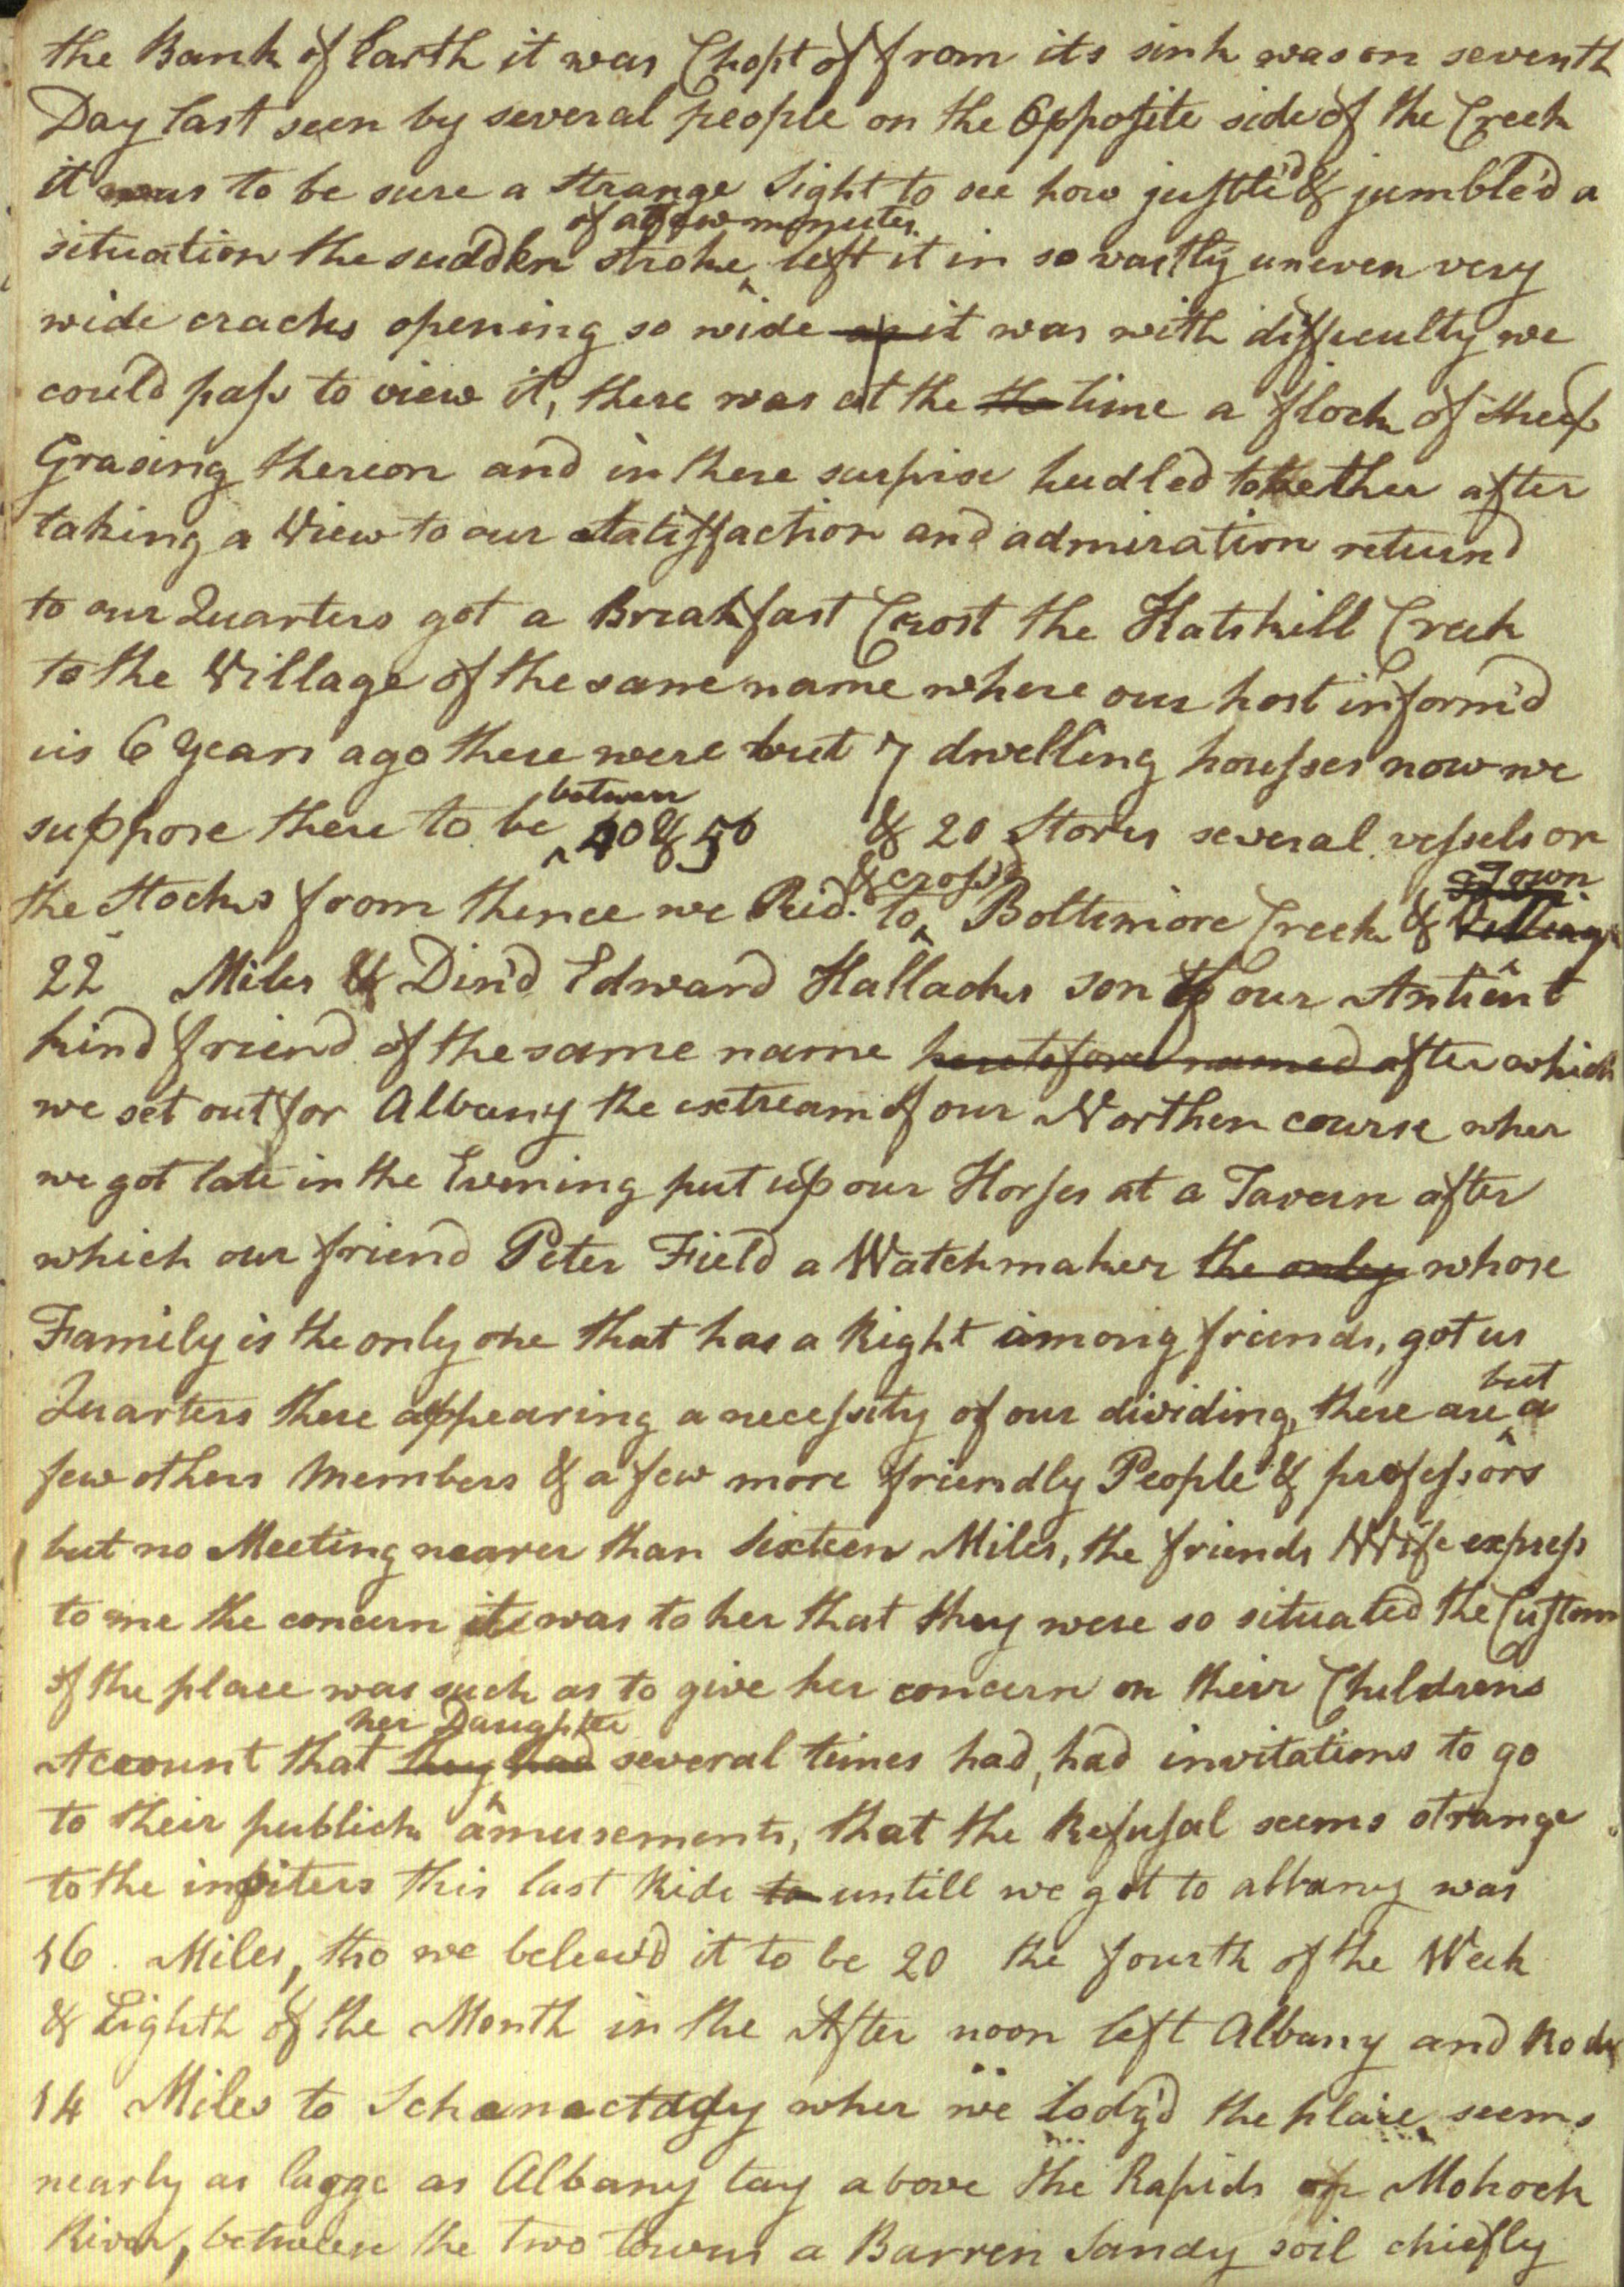 the Bank of Earth it was Chopt off from its sink was on seventh
Day last seen by several people on the Opposite side of the Creek
it was to be sure a strange Sight to see how justle'd & jumble'd a
of a few minutes
situation the sudden stroke left it in so vastly uneven very
wide cracks opening so wide as it was with difficulty we
could pass to view it, there was at the the time a flock of sheep
Grasing thereon and in there surprise hudled together after
taking a View to our satisfaction and admiration returnd
to our Quarters got a Breakfast Crost the Hatskill Creek
to the Village of the same name where our host inform'd
us 6 Years ago there were but 7 dwelling housses now we
between
suppose there to be 40 & 50 & 20 Stores several vessels on
& cross'd
a Town
the Stocks from thence we Rid. to Boltimore Creek & Village
22 Miles & Din'd Edward Hallacks son of our Antient
kind friend of the same name heretofore named after which
we set out for Albany the extream of our Northen course wher
we got late in the Evening put up our Horses at a Tavern after
which our friend Peter Field a Watchmaker the only whose
Family is the only one that has a Right among friends, got us
but
Quarters there appearing a necessity of our dividing, there are a
few others Members & a few more friendly People & professors
but no Meeting nearer than Sixteen Miles, the friends Wife express
to me the concern it was to her that they were so situated the Custom
of the place was such as to give her concern on their Childrens
her Daughter
Account that they had several times had, had invitations to go
to their publick amusements, that the Refusal seems strange
to the inviters this last Ride to untill we got to albany was
16 Miles, tho we beliew'd it to be 20 the fourth of the Week
& Eighth of the Month in the After noon left Albany and Rode
14 Miles to Schanactady wher we lodg'd the place seems
nearly as large as Albany lay above the Rapids of Mohock
River, between the two towns a Barren Sandy soil chiefly